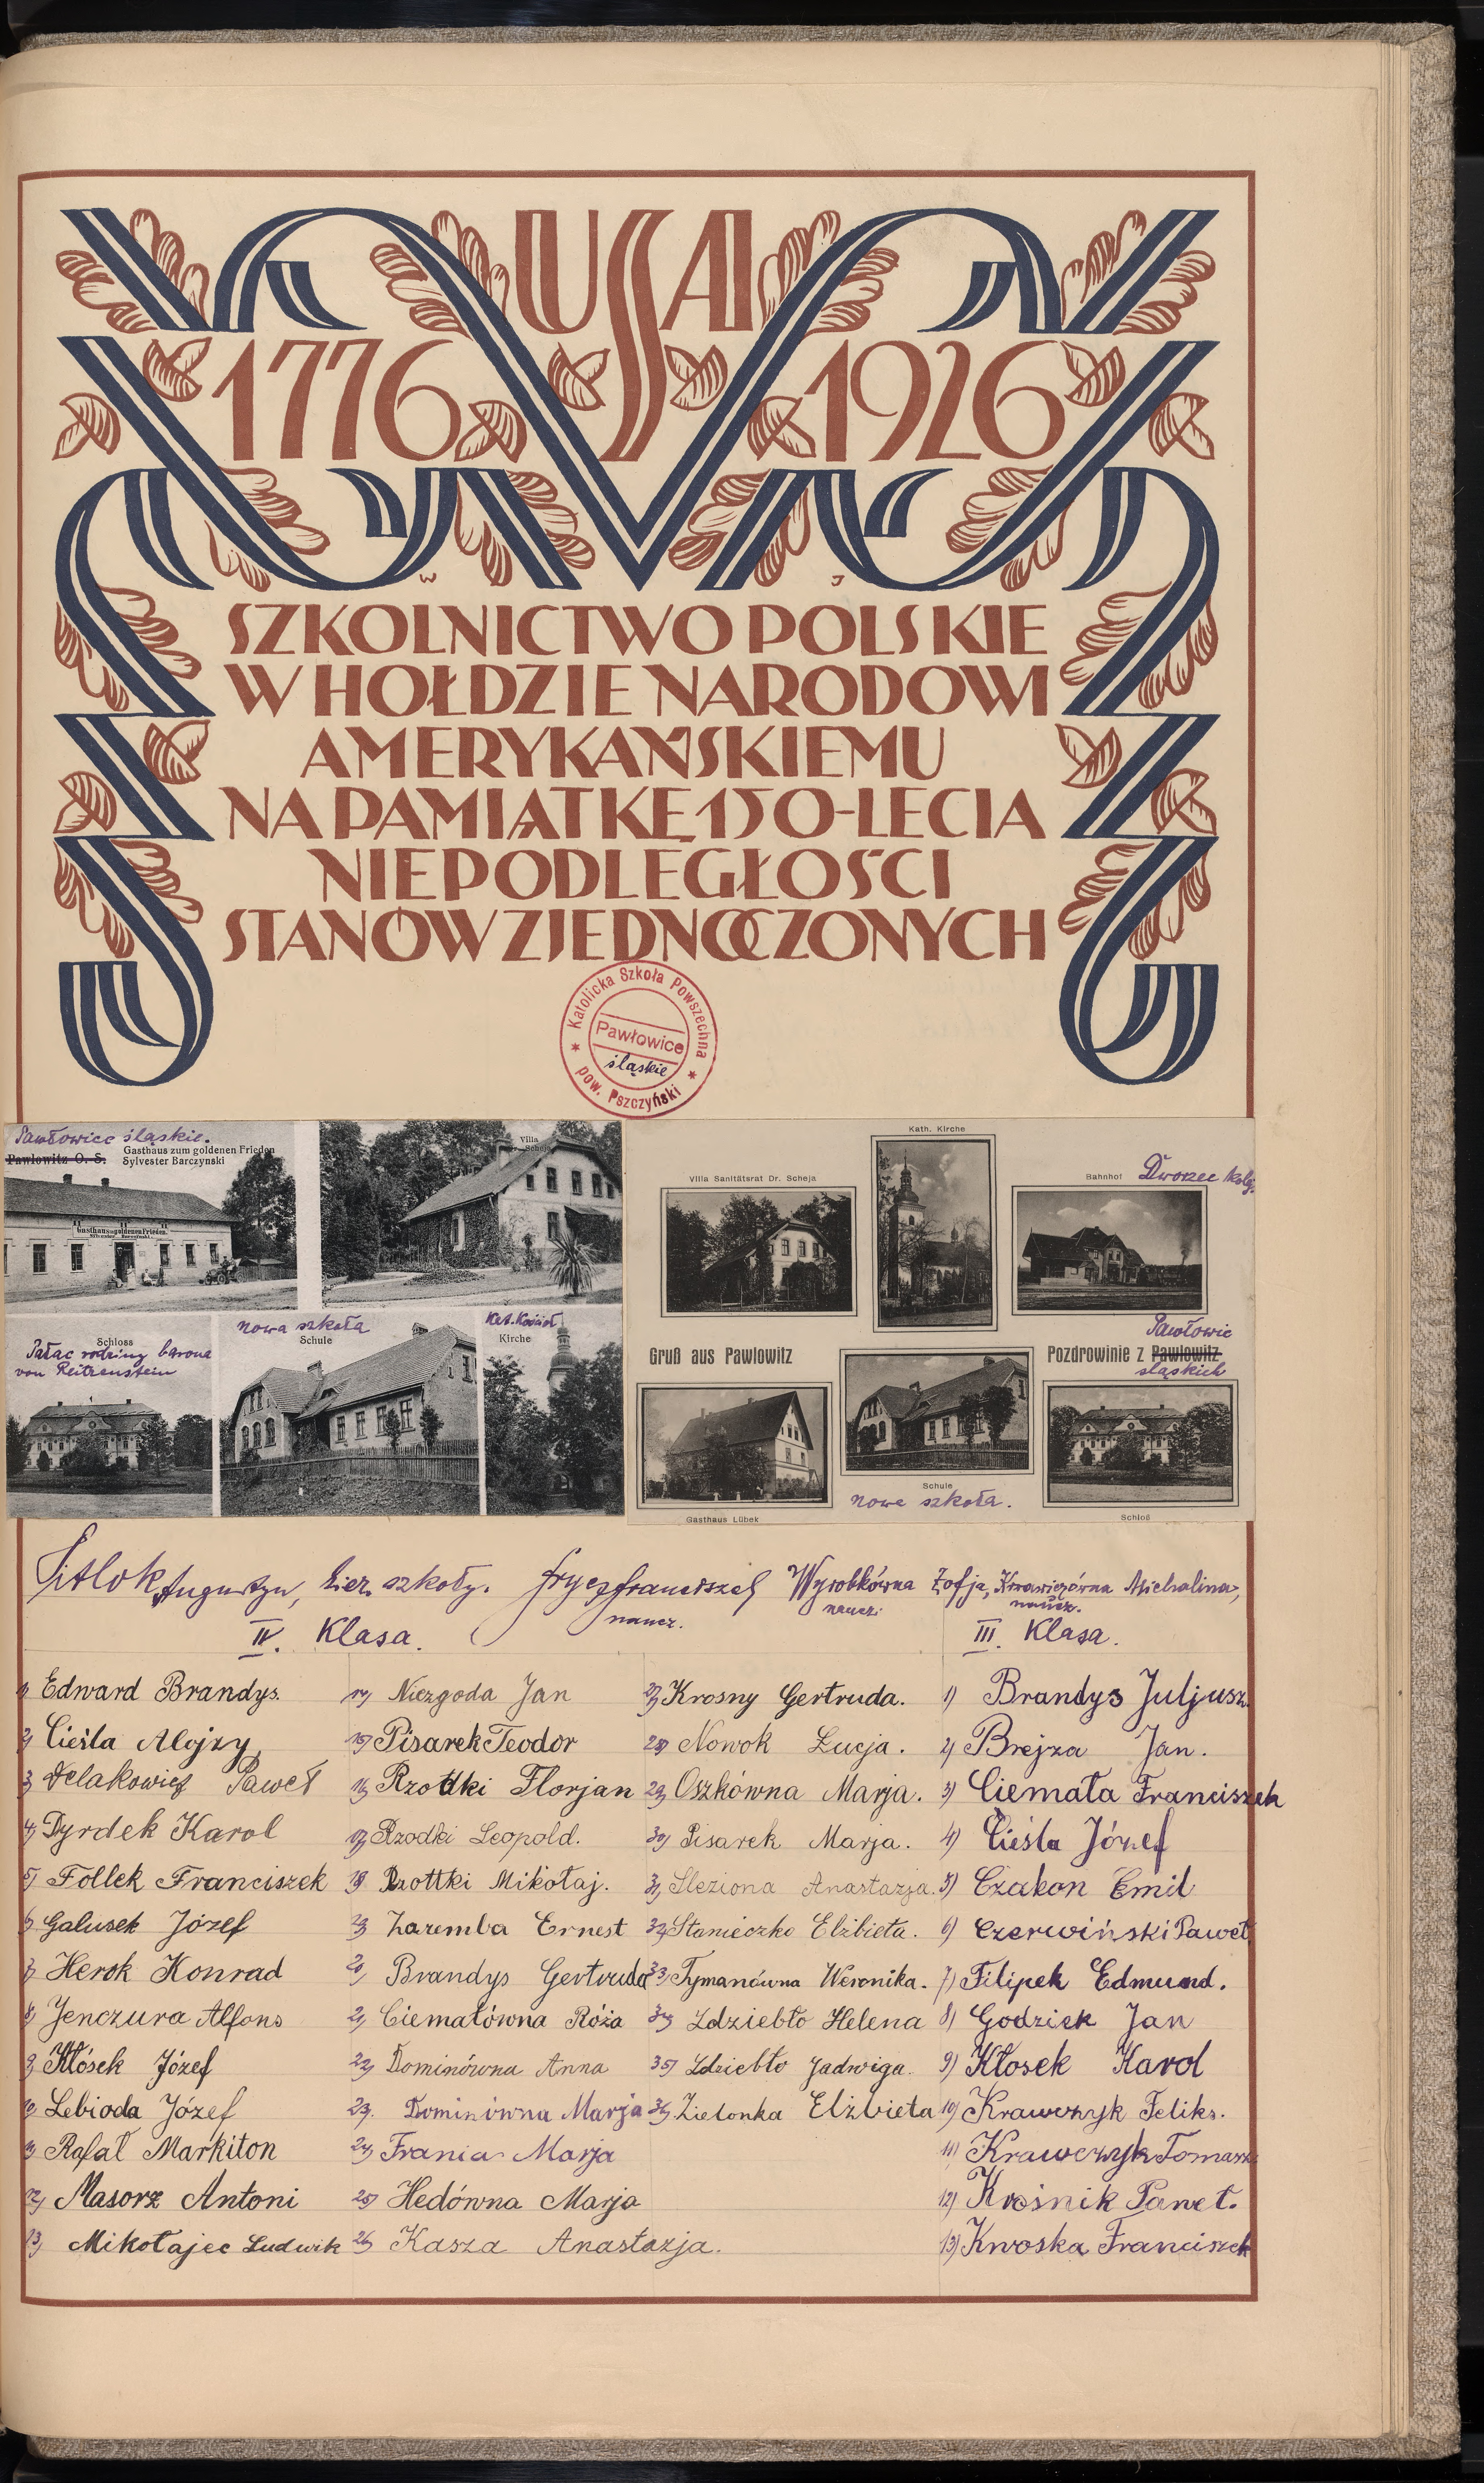 USA
1776 1926
W J
SZKOLNICTWO POLSKIE
W HOŁDZIE NARODOWI
AMERYKAŃSKIEMU
NA PAMIĄTKĘ 150-LECIA
NIEPODLEGŁOŚCI
STANÓW ZJEDNOCZONYCH
Katolicka Szkoła Powszechna
Pawłowice
śląskie
pow. Pszczyński
Pawłowice śląskie.
Pawlowitz O. S. Gasthaus zum goldenen Frieden
Sylvester Barczynski
Gasthaus zum goldenen Frieden
Sylvester Barczynski
Villa
Dr. Scheja
Schloss
Pałac rodziny barona
von Reitzenstein
nowa szkoła
Schule
Kat. Kościół
Kirche
Kath. Kirche
Villa Sanitätsrat Dr. Scheja
Bahnhof Dworzec kolej.
Gruß aus Pawlowitz
Pawłowic
Pozdrowinie z Pawlowitz
śląskich
Gasthaus Lübek
Schule
nowa szkoła.
Schloß
Sitlok Augustyn, kier. szkoły. Frycz Franciszek Wyrobkówna Zofja, Krawiczówna Michalina,
naucz. naucz. naucz.
IV. Klasa. III. Klasa.
1) Edward Brandys.
2) Cieśla Alojzy
3) Delakowicz Paweł
4) Dyrdek Karol
5) Follek Franciszek
6) Galusek Józef
7) Herok Konrad
8) Jenczura Alfons
9) Kłósek Józef
10) Lebioda Józef
11) Rafał Markiton
12) Masorz Antoni
13) Mikołajec Ludwik
14) Niezgoda Jan
15) Pisarek Teodor
16) Rzottki Florjan
17) Rzodki Leopold.
18) Rzottki Mikołaj.
19) Zaremba Ernest
20) Brandys Gertruda
21) Ciemałówna Róża
22) Dominówna Anna
23. Dominówna Marja
24) Frania Marja
25) Hedówna Marja
26) Kasza Anastazja.
27) Krosny Gertruda.
28) Nowok Łucja.
29) Oszkówna Marja.
30) Pisarek Marja.
31) Śleziona Anastazja.
32) Stanieczko Elżbieta.
33) Tymanówna Weronika.
34) Zdziebło Helena
35) Zdziebło Jadwiga.
36) Zielonka Elżbieta
1) Brandys Juljusz
2) Brejza Jan.
3) Ciemała Franciszek
4) Cieśla Józef
5) Czakon Emil
6) Czerwiński Paweł
7) Filipek Edmund.
8) Godziek Jan
9) Kłosek Karol
10) Krawczyk Feliks.
11) Krawczyk Tomasz
12) Krośnik Paweł.
13) Kwoska Franciszek